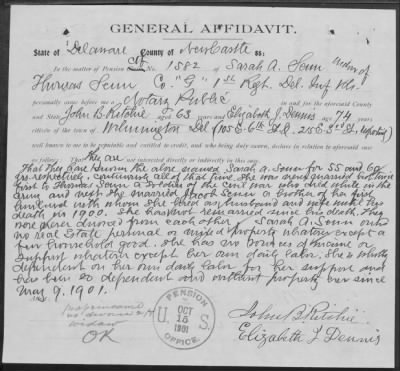 GENERAL AFFIDAVIT.
State of Delaware County of New Castle ss:
In the matter of Pension Ctf No. 1582 of Sarah A. Senn widow of
Thomas Senn Co. "G" 1st Regt. Del. Inf Vols.
personally came before me a Notary Public in and for the aforesaid County
and State John B. Ritchie aged 63 years and Elizabeth J. Dennis aged 74 years
citizen of the town of Wilmington Del
well known to me to be reputable and entitled to credit, and who being duly sworn, declare in relation to aforesaid case
as follows: They are not interested directly or indirectly in this case.
That they have known the above named Sarah A. Senn for 55 and 60
yrs respectively, continuing all of that time. She was married twice
first to Thomas Senn a soldier of the civil war who died while in the
Army and next she married Jacob Senn a brother of her first
husband with whom she lived as husband and wife until his
death in 1900. She has not remarried since his death. They
nor were divorced from each other. Sarah A. Senn owns
no real Estate personal or mixed property whatever except a
few household good. She has no sources of income or
support whatever except her own daily labor. She is wholly
dependent on her own daily labor for her support and
has been so dependent and without property ever since
May 9. 1901.
widow
OK
PENSION
U. S.
OCT
15
1901
OFFICE.
John B. Ritchie.
Elizabeth J Dennis